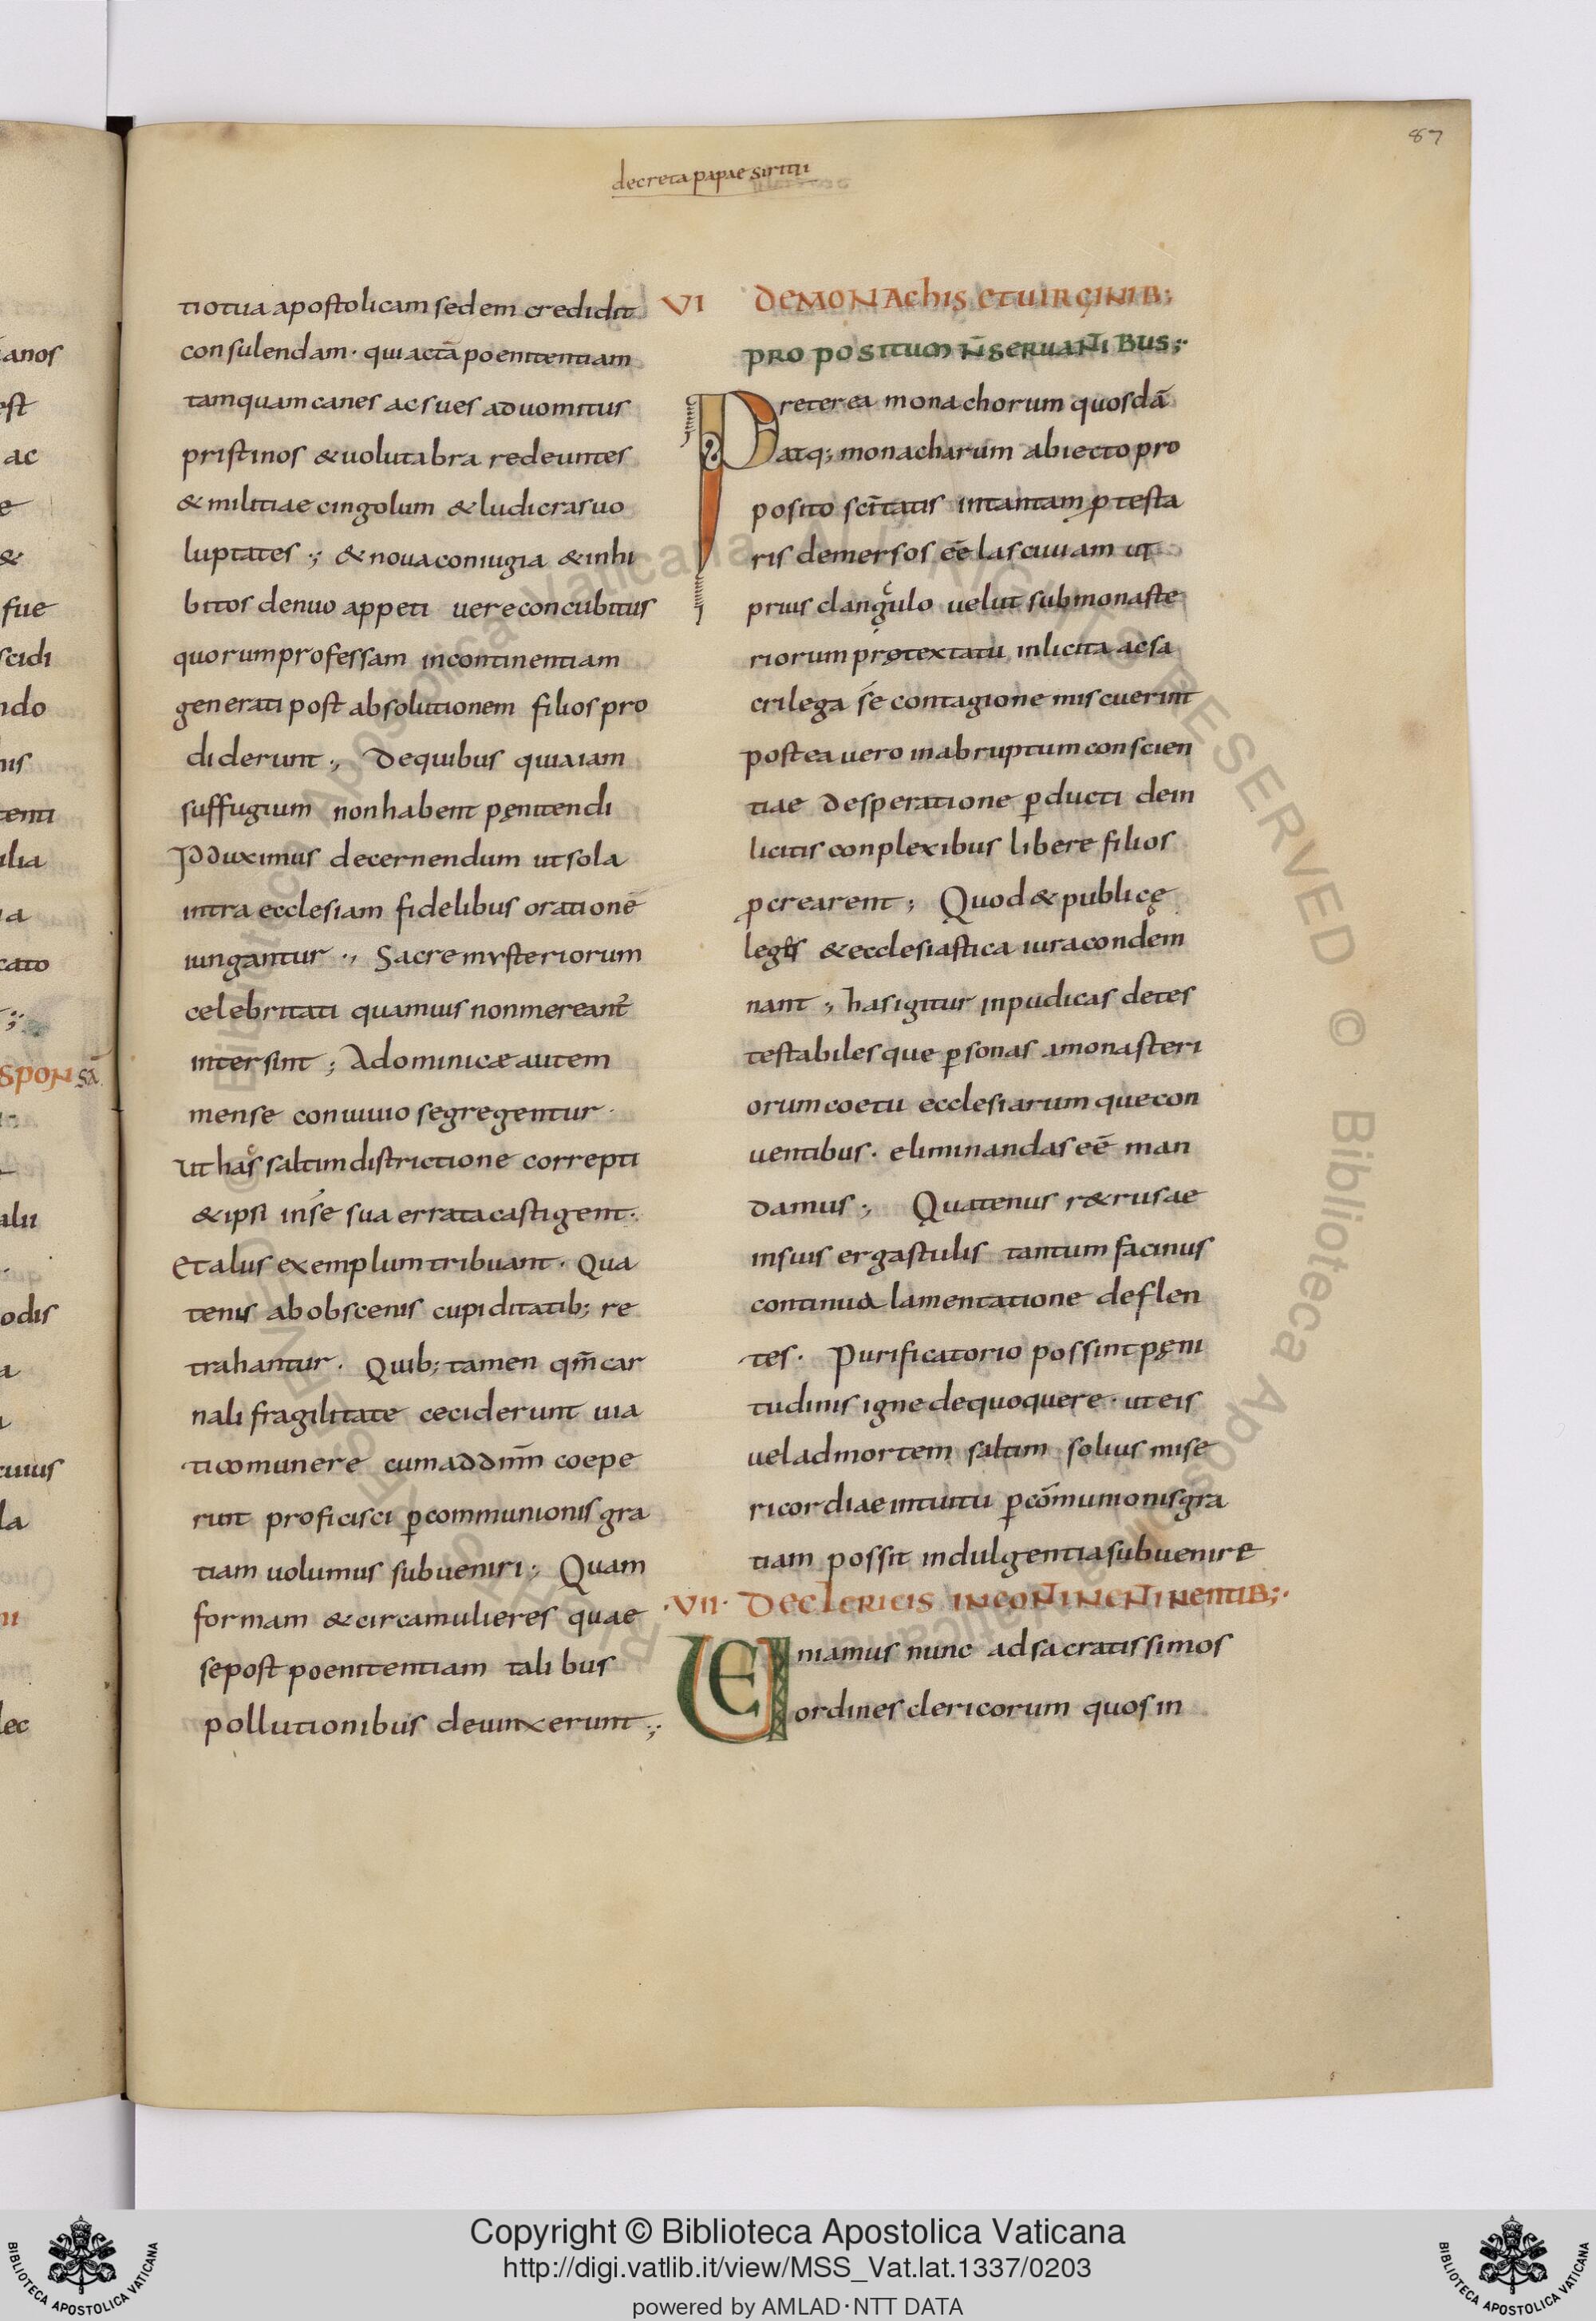 87
decreta papae siricii
tio tua apostolicam sedem credidit
consulendam · qui actā poenitentiam
tamquam canes ac sues ad uomitus
pristinos & uolutabra redeuntes
& militiae cingolum & ludicras uo
luptates ; & noua coniugia & inhi
bitos denuo appeti uere concubitus
quorum professam incontinentiam
generati post absolutionem filios pro
diderunt ., De quibus quia iam
suffugium non habent pęnitendi
Id duximus decernendum ut sola
intra ecclesiam fidelibus orationē
iungantur ., Sacre mysteriorum
celebritati quamuis non mereant᷑
intersint ; A dominicæ autem
mense conuiuio segregentur ·
ut hac saltim districtione correpti
& ipsi in sé sua errata castigent ·
Et alus exemplum tribuant · Qua
tenis ab obscenis cupiditatib; re
trahantur · Quib; tamen qm̄ car
nali fragilitate ceciderunt uia
tico munere cum ad dnm̄ coepe
runt proficisci ꝑ communionis gra
tiam uolumus subueniri ; Quam
formam & circa mulieres quae
se post poenitentiam talibus
pollutionibus deuinxerunt ;
VI DE MONACHIS ET UIRGINIB;
PROPOSITUM N̄ SERUANTIBUS;
Preterea monachorum quosdā
atq; monacharum abiecto pro
posito sc̄itatis in tantam ꝓtesta
ris demersos eē lasciuiam ut
prius clangulo uelut sub monaste
riorum protextatu inlicita ac sa
crilega sé contagione miscuerint
postea uero in abruptum conscien
tiae desperatione ꝑducti de in
licitis conplexibus libere filios
ꝓcrearent ; Quod & publicę
leges & ecclesiastica iura condem
nant ; has igitur inpudicas detes
testabilesque ꝑsonas a monasteri
orum coetu ecclesiarumque con
uentibus · eliminandas eē man
damus ; Quatenus r&rusae
in suis ergastulis tantum facinus
continua lamentatione deflen
tes · Purificatorio possint pęni
tudinis igne dequoquere · ut eis
uel ad mortem saltim solius mise
ricordiae intuitu ꝑ cōmunionis gra
tiam possit indulgentia subuenire
·VII· DE CLERICIS INCONTINENTINENTIB;
UEniamus nunc ad sacratissimos
ordines clericorum quos in
anos
est
ac
e
&
fue
scidi
ndo
nis
tenti
ilia
ia
cato
SPONSĀ
alii
odis
a
cuius
la
ni
lec
© Biblioteca Apostolica Vaticana ALL RIGHTS RESERVED
Copyright © Biblioteca Apostolica Vaticana
http://digi.vatlib.it/view/MSS_Vat.lat.1337/0203
powered by AMLAD·NTT DATA
BIBLIOTECA APOSTOLICA VATICANA
BIBLIOTECA APOSTOLICA VATICANA